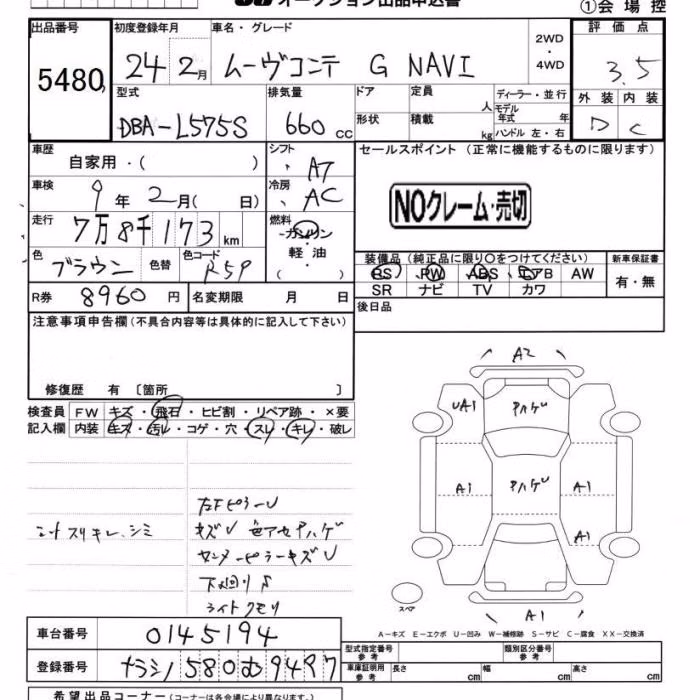 オークション出品申込書
①会場控
出品番号 初度登録年月 車名・グレード 評価点
5480 24年2月 ムーヴコンテ G NAVI 2WD・4WD 3.5
型式 排気量 ドア 定員 人 ディーラー・並行 外装 内装
DBA-L575S 660cc 形状 積載 kg モデル年式 年 ハンドル 左・右 D C
車歴 自家用・( ) シフト AT セールスポイント (正常に機能するものに限ります)
車検 9年2月( 日) 冷房 AC NOクレーム・売切
走行 7万8千173km 燃料 ガソリン・軽油・( )
色 ブラウン 色替 色コード R59 装備品(純正品に限り○をつけてください) 新車保証書
PS PW ABS エアB AW 有・無
SR ナビ TV カワ
R券 8960円 名変期限 月 日 後日品
注意事項申告欄(不具合内容等は具体的に記入して下さい)
修復歴 有 〔箇所 〕
検査員記入欄 FW キズ・飛石・ヒビ割・リペア跡・×要
内装 キズ・汚レ・コゲ・穴・スレ・キレ・破レ
A2
UA1 アハゲ
A1 アハゲ A1
A1
A1
スペア
左FピラーU
シートスリキレ、シミ キズU 色アセアハゲ
センターピラーキズU
下廻りS
ライトクモリ
A-キズ E-エクボ U-凹み W-補修跡 S-サビ C-腐食 XX-交換済
車台番号 0145194
型式指定番号 類別区分番号
登録番号 ナラシノ580む
車庫証明用参考 長さ cm 幅 cm 高さ cm
希望出品コーナー(コーナーは各会場により異なります)